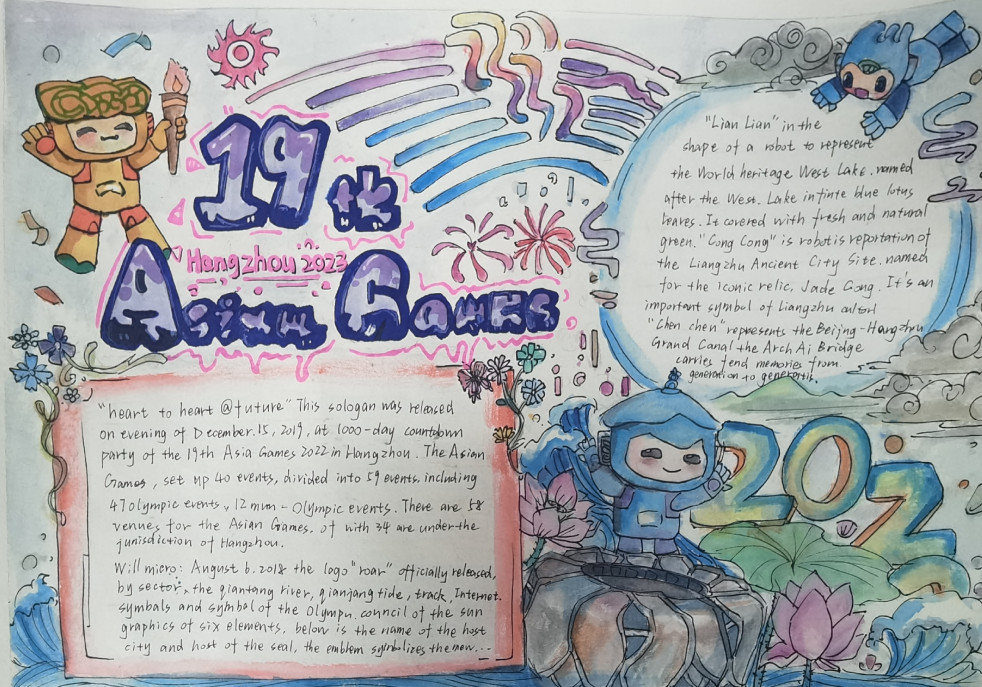 19th
Hangzhou 2023
Asian Games
"Lian Lian" in the
shape of a robot to represent
the World heritage West Lake. named
after the West. Lake infinte blue lotus
leaves. It covered with fresh and natural
green. "Cong Cong" is robot is reportation of
the Liangzhu Ancient City Site. named
for the iconic relic, Jade Cong. It's an
important symbol of Liangzhu
"Chen chen" represents the Beijing-Hangzhou
Grand Canal the Arch Ai Bridge
carries fend memories from
generation to
"heart to heart @future" This sologan was released
on evening of December.15, 2019, at 1000-day countdown
party of the 19th Asia Games 2022 in Hangzhou. The Asian
Games, set up 40 events, divided into 59 events, including
47 olympic events, 12 mum-Olympic events. There are 58
venues for the Asian Games, of with 34 are under the
junisdiction of Hangzhou.
Will micro: August 6. 2018 the logo "roar" officially released,
by sector, the qiantang river, qianjang tide, track, Internet.
symbols and symbol of the Olympu. council of the sun
graphics of six elements, below is the name of the host
city and host of the seal, the emblem symbolizes the new...
202